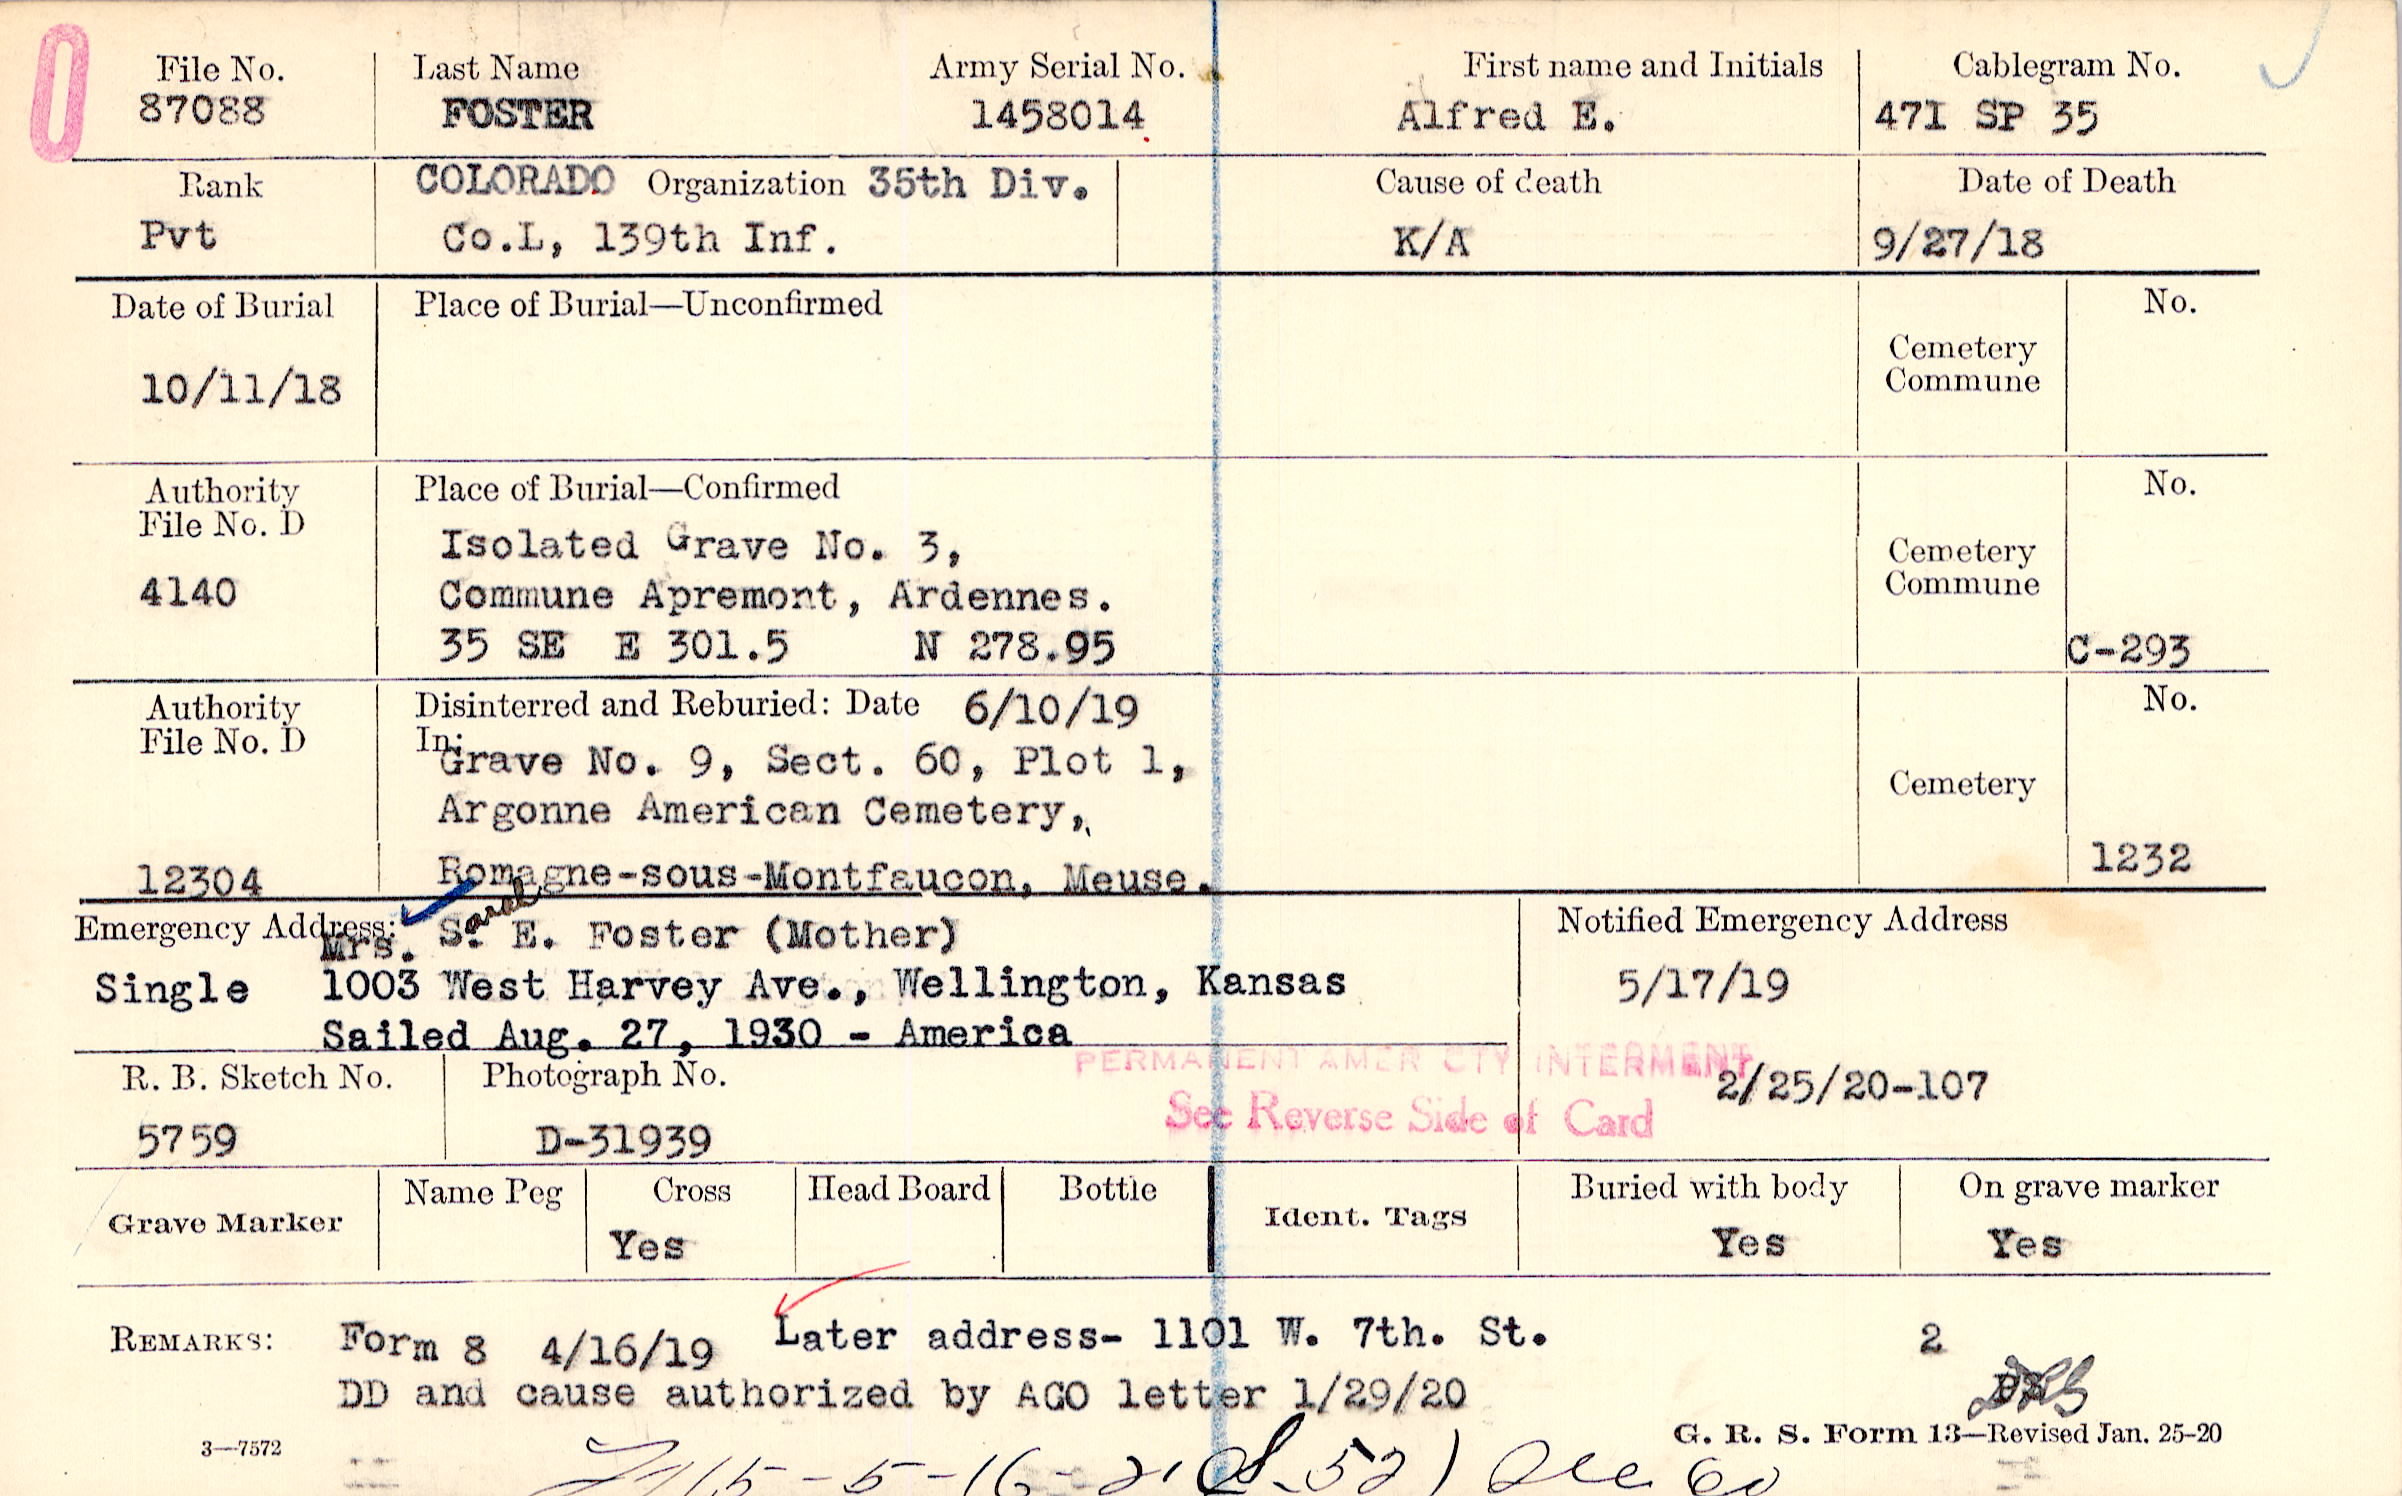 File No. Last Name Army Serial No. First name and Initials Cablegram No.
87088 FOSTER 1458014 Alfred E. 471 SP 35
Rank COLORADO Organization 35th Div. Cause of death Date of Death
Pvt Co.L, 139th Inf. K/A 9/27/18
Date of Burial Place of Burial—Unconfirmed No.
Cemetery
Commune
10/11/18
Authority Place of Burial—Confirmed No.
File No. D
Isolated Grave No. 3,
Cemetery
4140 Commune Apremont, Ardennes. Commune
35 SE E 301.5 N 278.95 C-293
Authority Disinterred and Reburied: Date 6/10/19 No.
File No. D In:
Grave No. 9, Sect. 60, Plot 1,
Cemetery
Argonne American Cemetery,
12304 Romagne-sous-Montfaucon, Meuse. 1232
Emergency Address: Mrs. S. arah E. Foster (Mother) Notified Emergency Address
Single 1003 West Harvey Ave., Wellington, Kansas 5/17/19
Sailed Aug. 27, 1930 - America
PERMANENT AMER CTY INTERMENT
R. B. Sketch No. Photograph No. 2/25/20-107
See Reverse Side of Card
5759 D-31939
Grave Marker Name Peg Cross Head Board Bottle Ident. Tags Buried with body On grave marker
Yes Yes Yes
REMARKS: Form 8 4/16/19 Later address- 1101 W. 7th. St. 2
DD and cause authorized by AGO letter 1/29/20
3—7572 G. R. S. Form 13—Revised Jan. 25-20